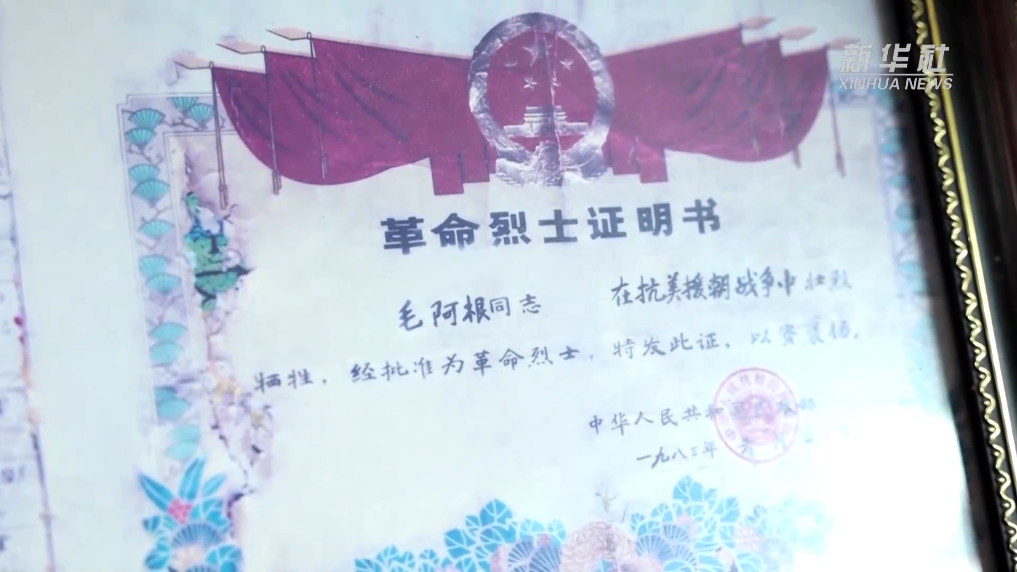 新华社
XINHUA NEWS
革命烈士证明书
毛阿根同志 在抗美援朝战争中壮烈
牺牲，经批准为革命烈士。特发此证，以资褒扬。
中华人民共和国民政部
一九八三年